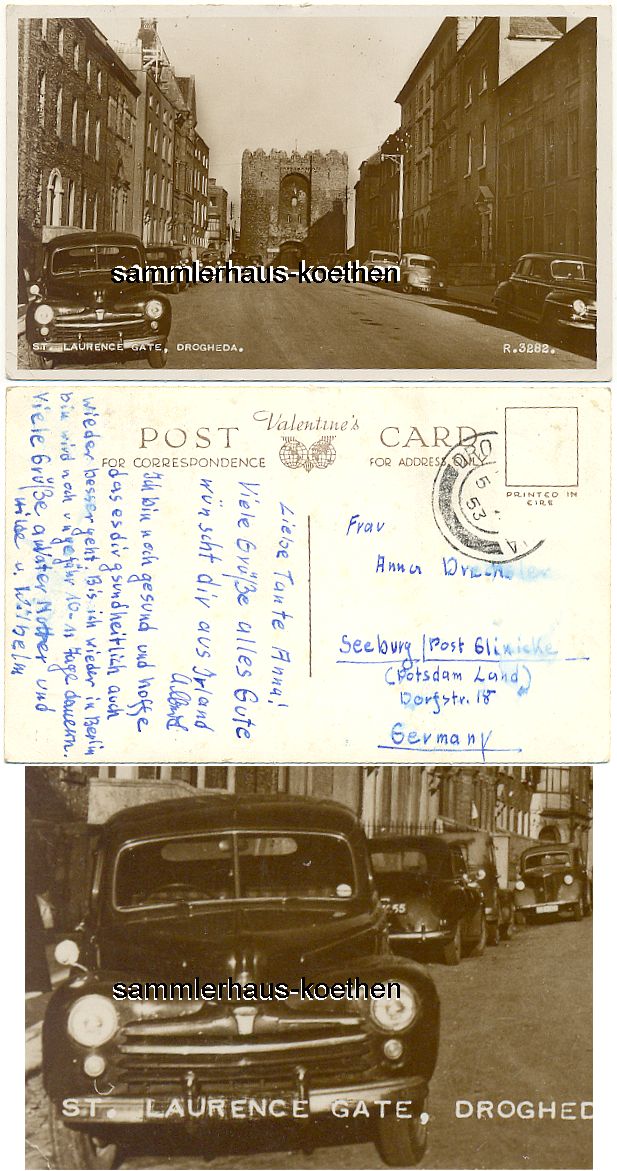 sammlerhaus-koethen
ST. LAURENCE GATE, DROGHEDA.
R.3282.
Valentine's
POST CARD
FOR CORRESPONDENCE
FOR ADDRESS ONLY
PRINTED IN
EIRE
DRO
5
53
A
Liebe Tante Anna!
Viele Grüße alles Gute
wünscht dir aus Irland
Ich bin noch gesund und hoffe
das es dir gsundheitlich auch
wieder besser geht. Bis ich wieder in Berlin
bin wird noch ungefähr 10-11 Tage dauern.
Viele Grüße an Vater Mutter und
u. Wilhelm
Frau
Anna Drechsler
Seeburg / Post Glinicke
(Potsdam Land)
Dorfstr. 18
Germany
55
sammlerhaus-koethen
ST. LAURENCE GATE, DROGHED